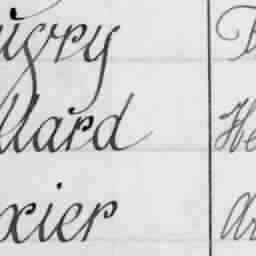 ugry
llard He
xier Ar